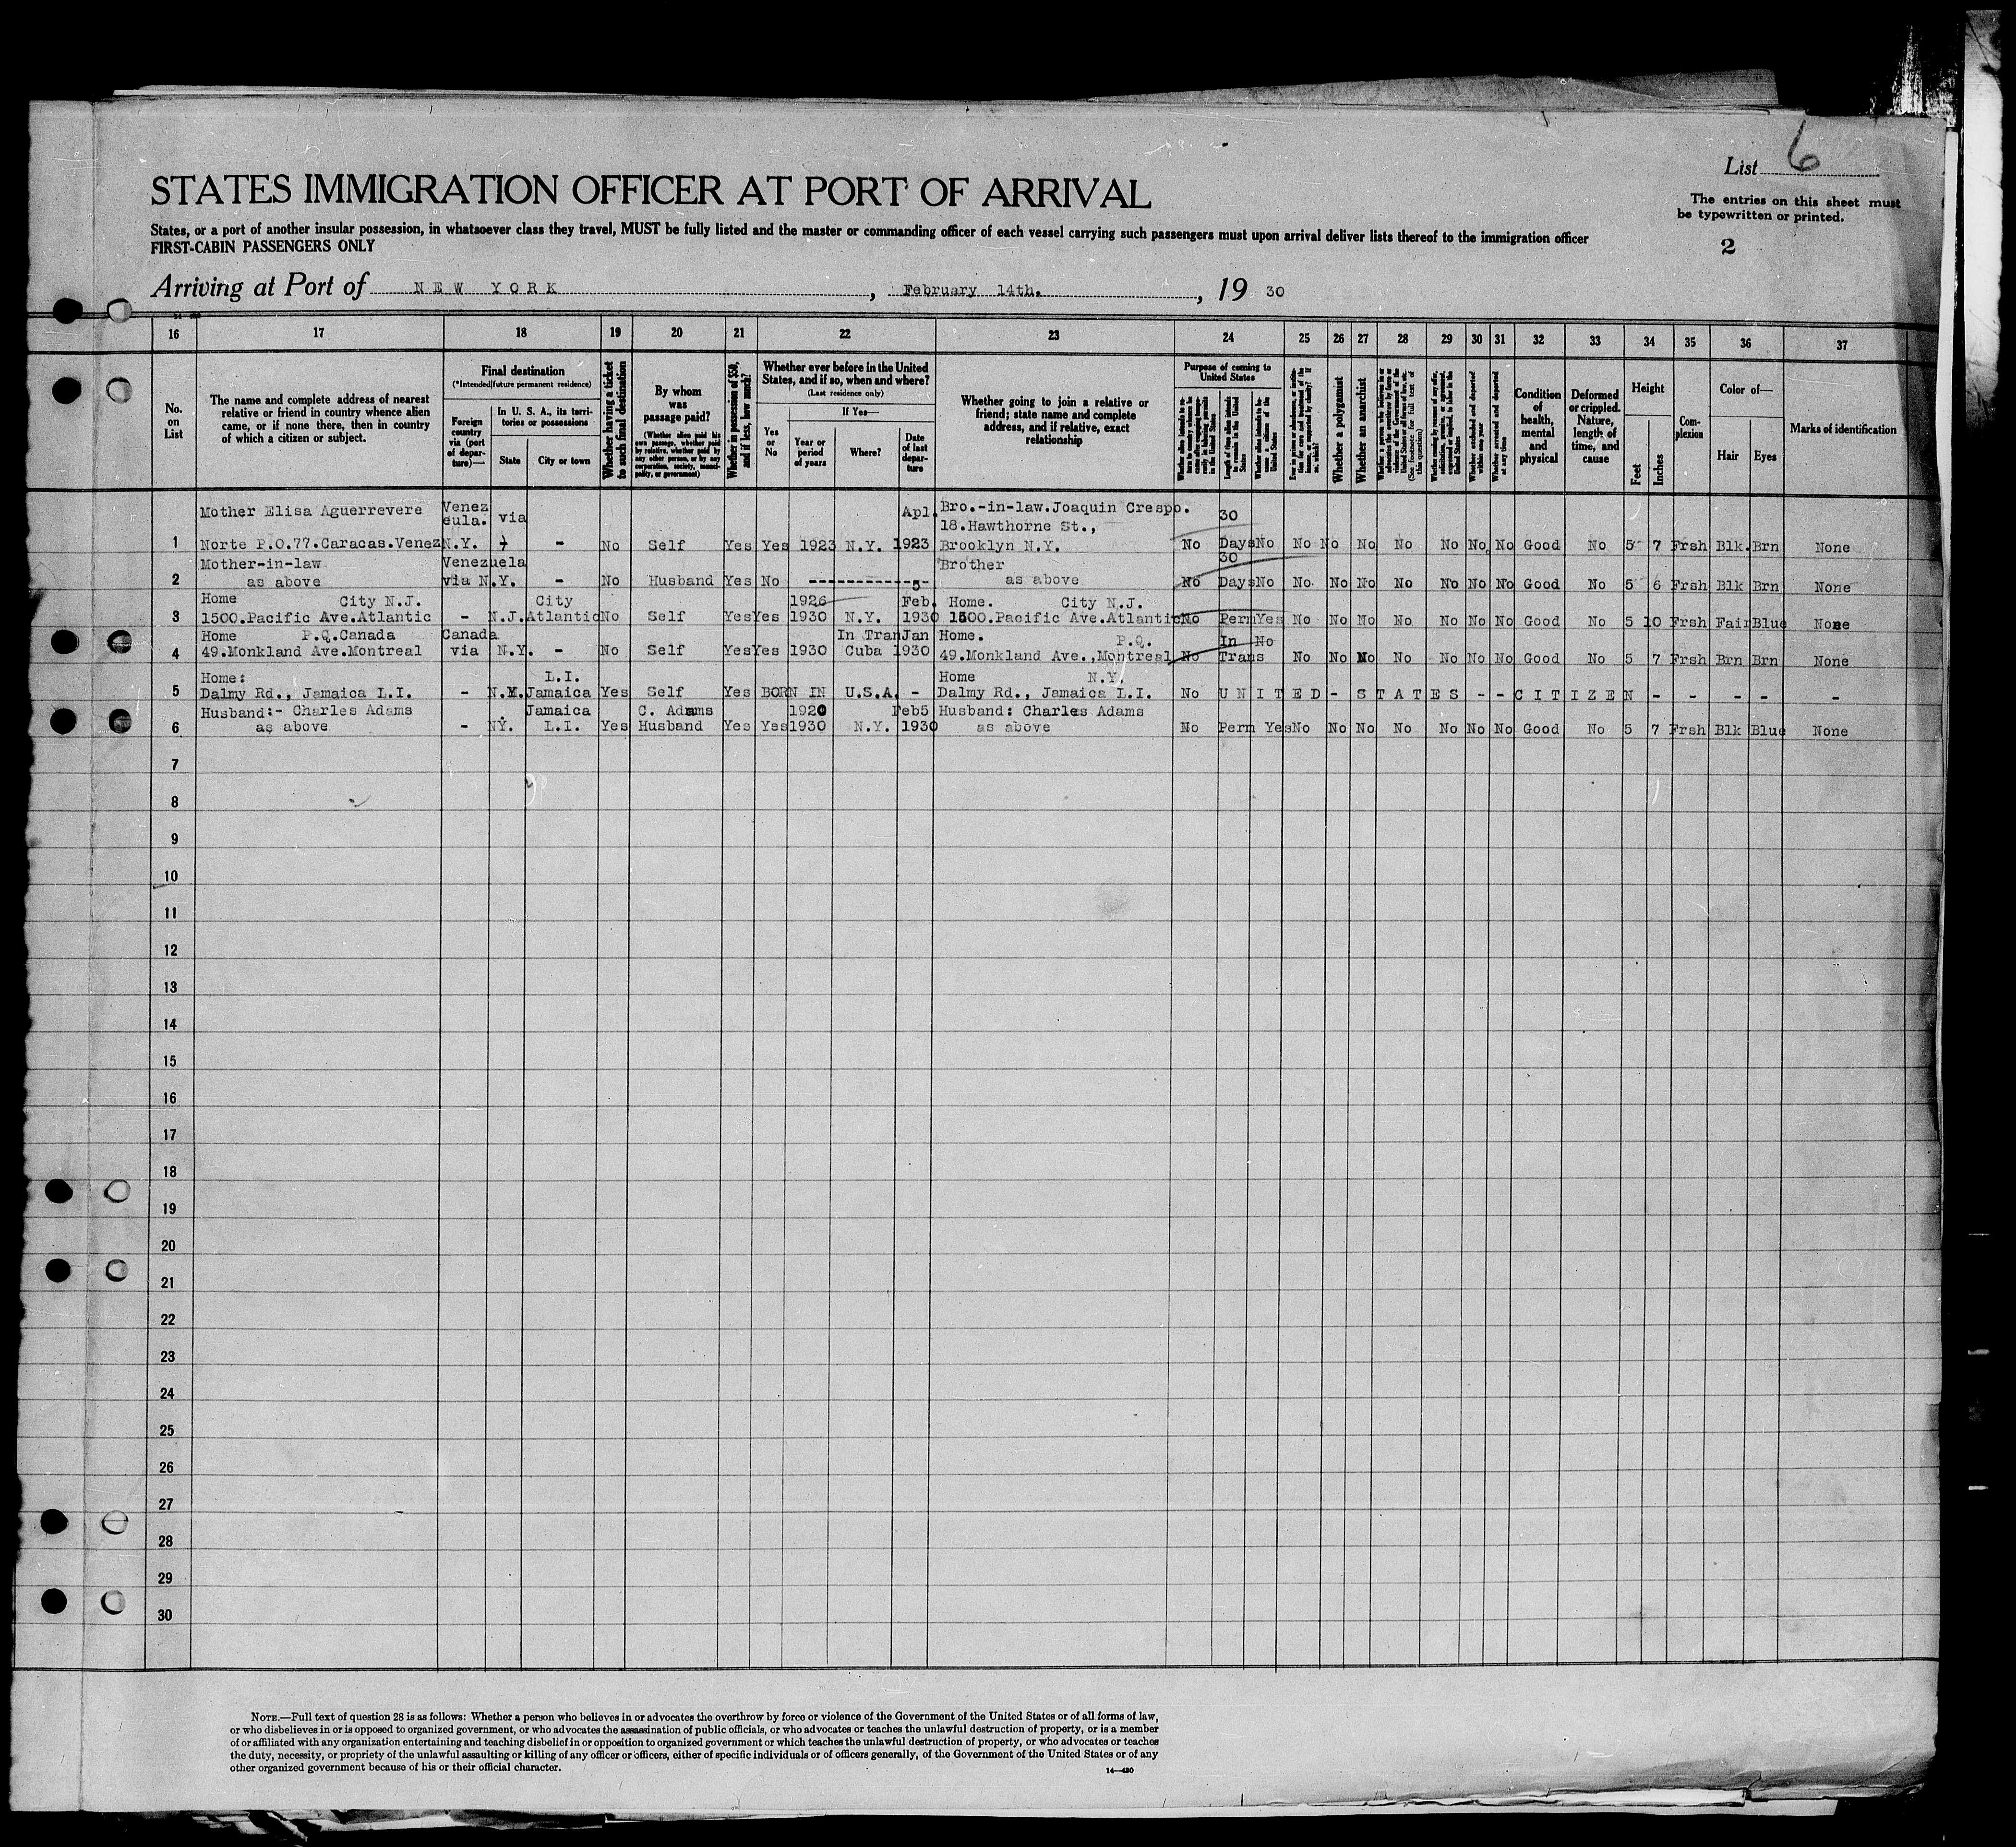 List 6
STATES IMMIGRATION OFFICER AT PORT OF ARRIVAL
The entries on this sheet must
be typewritten or printed.
States, or a port of another insular possession, in whatsoever class they travel, MUST be fully listed and the master or commanding officer of each vessel carrying such passengers must upon arrival deliver lists thereof to the immigration officer
FIRST-CABIN PASSENGERS ONLY
2
Arriving at Port of NEW YORK, February 14th., 1930
16 17 18 19 20 21 22 23 24 25 26 27 28 29 30 31 32 33 34 35 36 37
No. on List
The name and complete address of nearest relative or friend in country whence alien came, or if none there, then in country of which a citizen or subject.
Final destination
(*Intended future permanent residence)
Foreign country via (port of departure)—
In U. S. A., its territories or possessions
State
City or town
Whether having a ticket to such final destination
By whom was passage paid?
(Whether alien paid his own passage, whether paid by relative, whether paid by any other person, or by any corporation, society, municipality, or government)
Whether in possession of $50, and if less, how much?
Whether ever before in the United States, and if so, when and where?
(Last residence only)
Yes or No
If Yes—
Year or period of years
Where?
Date of last departure
Whether going to join a relative or friend; state name and complete address, and if relative, exact relationship
Purpose of coming to United States
Length of time alien intends to remain in the United States
Whether alien intends to become a citizen of the United States
Whether a polygamist
Whether an anarchist
(See footnote for full text of this question)
Whether arrested and deported at any time
Condition of health, mental and physical
Deformed or crippled. Nature, length of time, and cause
Height
Feet
Inches
Complexion
Color of—
Hair
Eyes
Marks of identification
Mother Elisa Aguerrevere Venez eula. via Apl. Bro.-in-law.Joaquin Crespo. 30
18.Hawthorne St.,
1 Norte P.O.77.Caracas.Venez N.Y. - No Self Yes Yes 1923 N.Y. 1923 Brooklyn N.Y. No Days No No No No No No No No Good No 5 7 Frsh Blk. Brn None
Mother-in-law Venezuela Brother 30
2 as above via N.Y. - No Husband Yes No ------------- as above No Days No No. No No No No No No Good No 5 6 Frsh Blk Brn None
Home City N.J. City 1926 Feb. 5 Home. City N.J.
3 1500.Pacific Ave.Atlantic - N.J. Atlantic No Self Yes Yes 1930 N.Y. 1930 1500.Pacific Ave.Atlantic No Perm Yes No No No No No No No Good No 5 10 Frsh Fair Blue None
Home P.Q.Canada Canada In Tran Jan Home. P.Q. In No
4 49.Monkland Ave.Montreal via N.Y. - No Self Yes Yes 1930 Cuba 1930 49.Monkland Ave.,Montreal No Trans No No No No No No No Good No 5 7 Frsh Brn Brn None
Home: L.I. Home N.Y.
5 Dalmy Rd., Jamaica L.I. - N.Y. Jamaica Yes Self Yes BORN IN U.S.A. - Dalmy Rd., Jamaica L.I. No UNITED - STATES - - CITIZEN - - - - -
Husband:- Charles Adams Jamaica C. Adams 1920 Feb5 Husband: Charles Adams
6 as above - NY. L.I. Yes Husband Yes Yes 1930 N.Y. 1930 as above No Perm Yes No No No No No No No Good No 5 7 Frsh Blk Blue None
7
8
9
10
11
12
13
14
15
16
17
18
19
20
21
22
23
24
25
26
27
28
29
30
NOTE.—Full text of question 28 is as follows: Whether a person who believes in or advocates the overthrow by force or violence of the Government of the United States or of all forms of law,
or who disbelieves in or is opposed to organized government, or who advocates the assassination of public officials, or who advocates or teaches the unlawful destruction of property, or is a member
of or affiliated with any organization entertaining and teaching disbelief in or opposition to organized government or which teaches the unlawful destruction of property, or who advocates or teaches
the duty, necessity, or propriety of the unlawful assaulting or killing of any officer or officers, either of specific individuals or of officers generally, of the Government of the United States or of any
other organized government because of his or their official character.
14—430